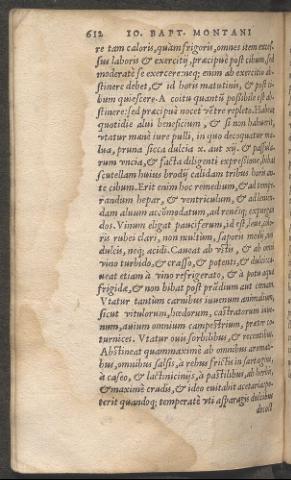 612 IO. BAPT. MONTANI
re tam caloris, quàm frigoris, omnes item exces
sus laboris & exercitij, præcipuè post cibum, sed
moderatè se exercere: neq; enim ab exercitio ab
stinere debet, & id horis matutinis, & post ci-
bum quiescere. A coitu quantũ possibile est ab-
stinere: sed præcipuè nocet vẽtre repleto. Habeat
quotidie alui beneficium, & si non habuerit,
vtatur manè iure pulli, in quo decoquatur mal
ua, pruna sicca dulcia x. aut xij. & passula-
rum vncia, & facta diligenti expressione, bibat
scutellam huius brodij calidam tribus horis an-
te cibum. Erit enim hoc remedium, & ad tempe-
randum hepar, & ventriculum, & ad
dam aluum accõmodatum, ad renéq; expurgan
dos. Vinum eligat pauciferum, id est, leue, colo-
ris rubei clari, non multùm, saporis medij, nec
dulcis, neq; acidi. Caueat ab vitis, & ab omni
vino turbido, & crasso, & potenti, & dulci: ca
ueat etiam à vino refrigerato, & à potu aquæ
frigidæ, & non bibat post prãdium aut cœnam.
Vtatur tantùm carnibus iuuenum animalium,
sicut vitulorum, hœdorum, castratorum iuue-
num, auium omnium campestrium, præter co-
turnices. Vtatur ouis sorbilibus, & recentibus.
Abstineat quammaximè ab omnibus aromati-
bus, omnibus salsis, à rebus frictis in sartagine,
à caseo, & lacticinijs, à pastilibus, ab herbis,
& maximè crudis, & ideo euitabit acetaria: po-
terit quandoq; temperatè vti asparagis dulcibus